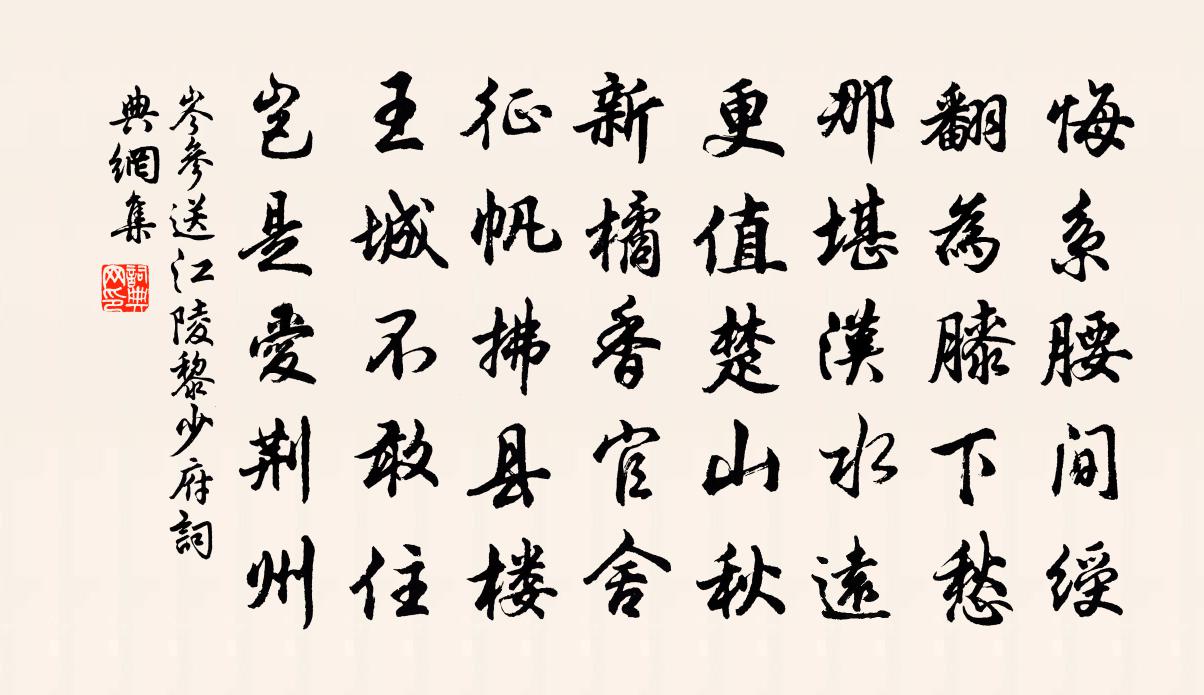 悔系腰间绶
翻為膝下愁
那堪漢水遠
更值楚山秋
新橘香官舍
征帆拂县楼
王城不敢住
岂是愛荆州
岑參送江陵黎少府詞
典網集
詞典
网印